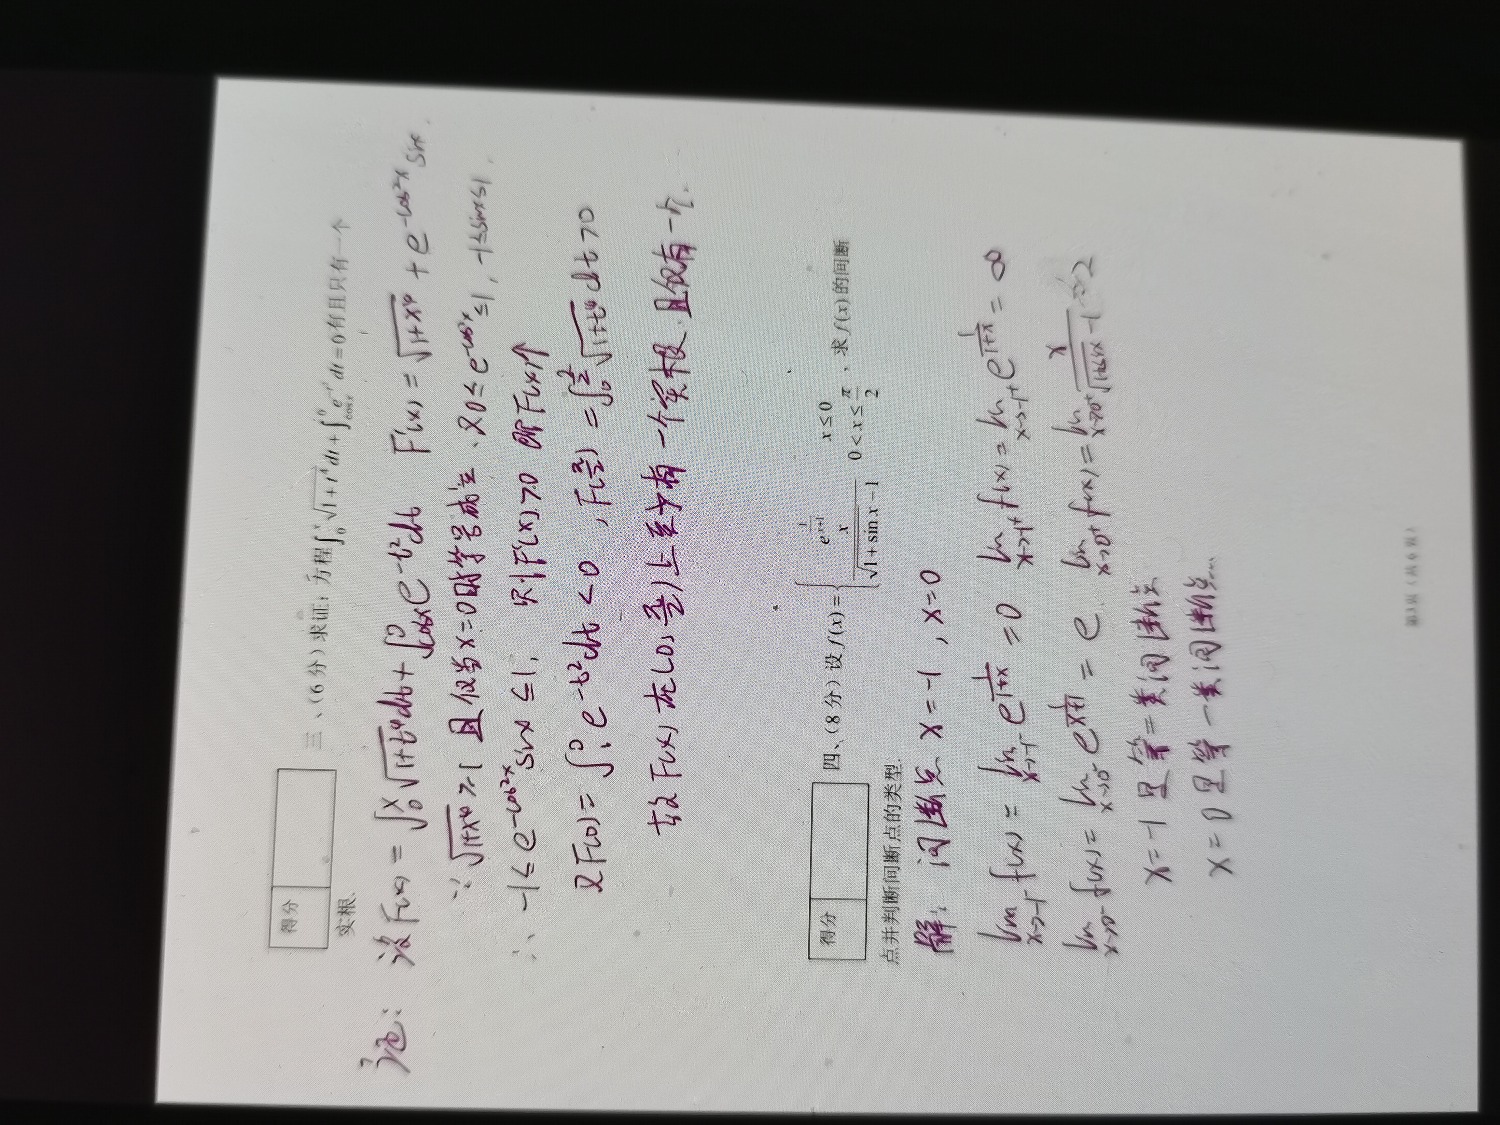 得分
三、(6分)求证:方程∫₀ˣ√(1+t⁴)dt+∫_{cosx}^0 e^{-t²}dt=0有且只有一个
实根.
证: 设F(x)=∫₀ˣ√(1+t⁴)dt+∫_{cosx}^0 e^{-t²}dt F'(x)=√(1+x⁴)+e^{-cos²x}sinx.
∵√(1+x⁴)≥1 且仅当x=0时等号成立.又0≤e^{-cos²x}≤1,-1≤sinx≤1.
∴-1≤e^{-cos²x}sinx≤1, 则F'(x)>0 即F(x)↑
又F(0)=∫₁⁰e^{-t²}dt<0,F(π/2)=∫₀^{π/2}√(1+t⁴)dt>0
故F(x)在(0,π/2)上至少有一个实根.且仅有一个.
得分
四、(8分)设f(x)={e^{1/(x+1)} x≤0
x/(√(1+sinx)-1) 0<x≤π/2 ,求f(x)的间断
点并判断间断点的类型.
解: 间断点x=-1,x=0
lim_{x→-1⁻}f(x)=lim_{x→-1⁻}e^{1/(1+x)}=0 lim_{x→-1⁺}f(x)=lim_{x→-1⁺}e^{1/(1+x)}=∞
lim_{x→0⁻}f(x)=lim_{x→0⁻}e^{1/(x+1)}=e. lim_{x→0⁺}f(x)=lim_{x→0⁺}x/(√(1+sinx)-1)=2
x=-1是第二类间断点
x=0是第一类间断点...
第3页(共6页)